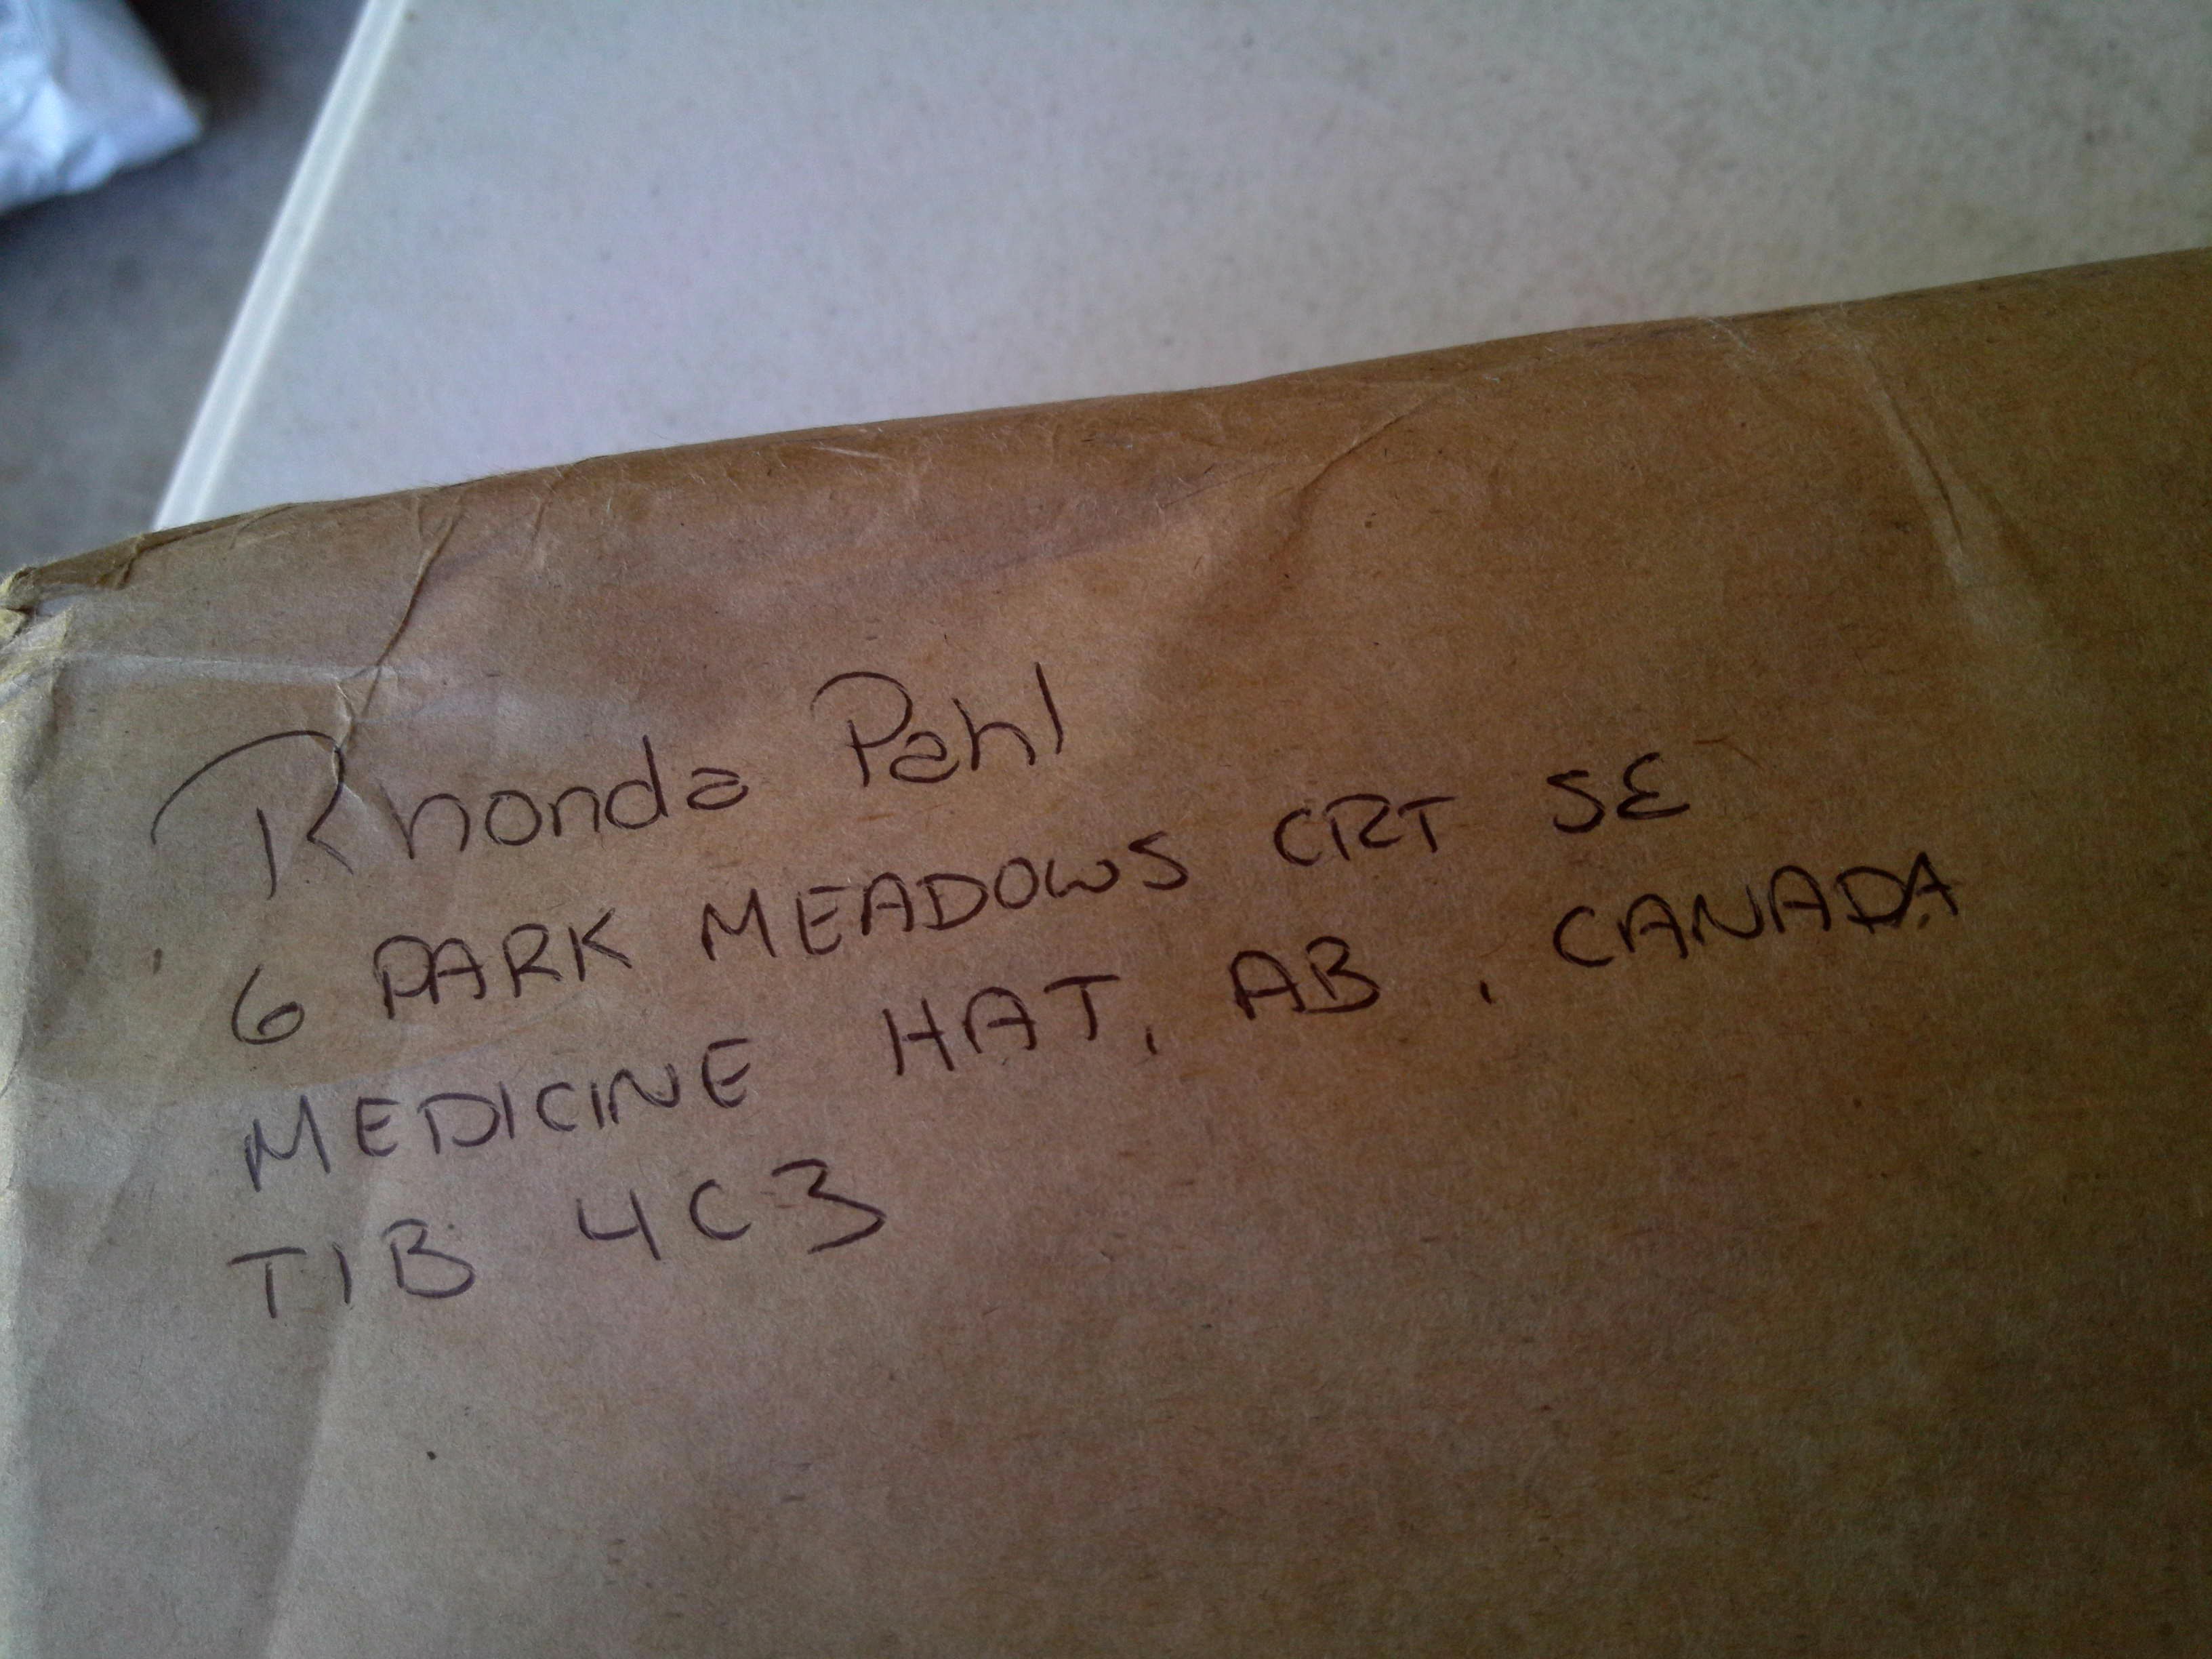 Rhonda Pahl
6 PARK MEADOWS CRT SE
MEDICINE HAT, AB , CANADA
T1B 4C3